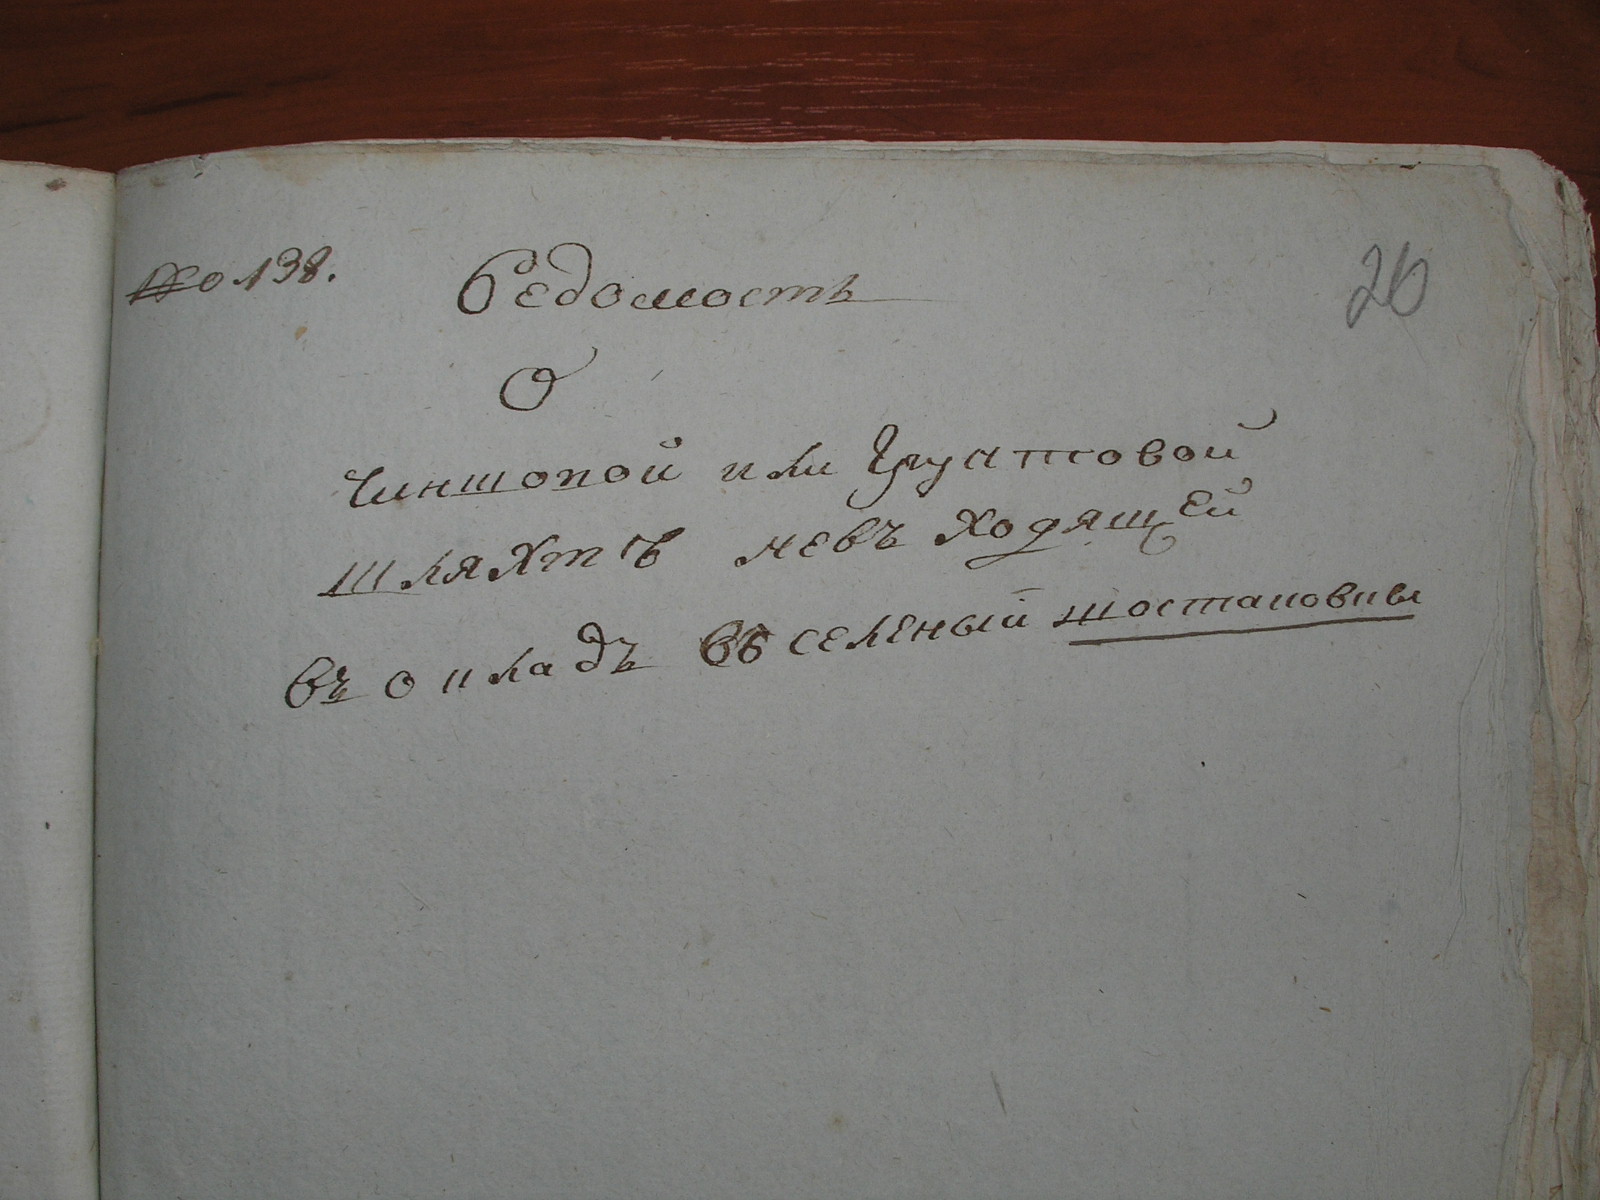 № 138. Ведомость 26
О
чиншовой или грунтовой
шляхтѣ невъ ходящей
въ окладъ въ селеный шостаковки